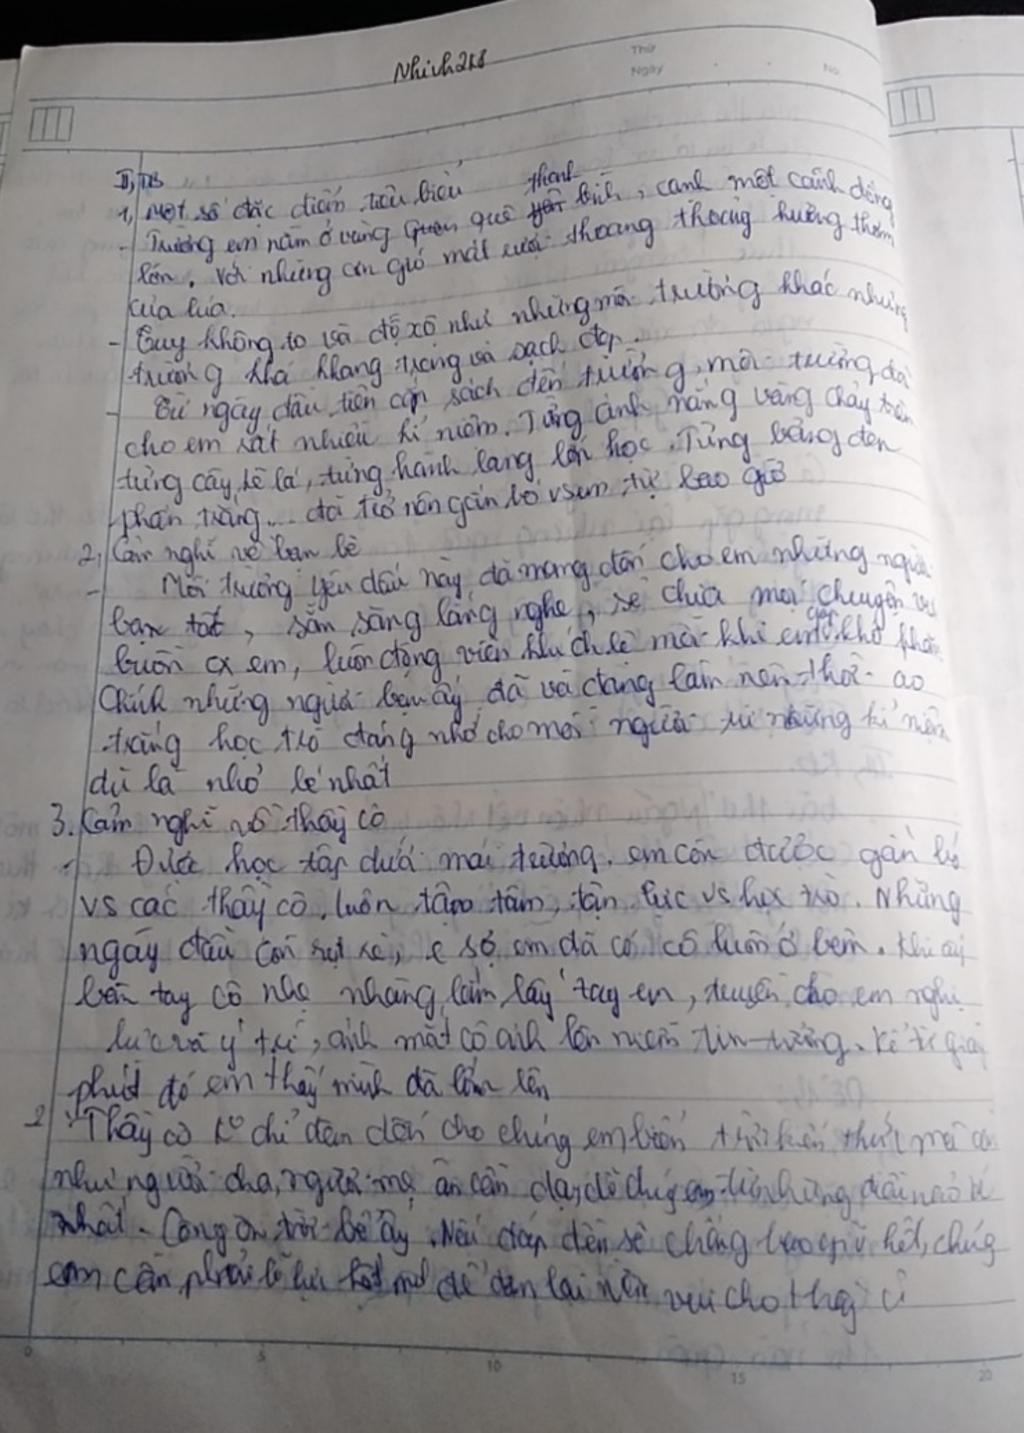 Nhinh2k8
Thứ
Ngày
No.
II, TB
1, Một số đặc điểm tiêu biểu
- Trường em nằm ở vùng quê thanh bình, cạnh một cánh đồng
lớn. Với những cơn gió mát rượi thoang thoảng hương thơm
của lúa.
- Tuy không to và đồ xộ như những mái trường khác nhưng
trường khá khang trang và sạch đẹp.
- Từ ngày đầu tiên cắp sách đến trường, mái trường đã
cho em rất nhiều kỉ niệm. Từng ánh nắng vàng chảy trên
từng cây, kẽ lá, từng hành lang lớp học. Từng bảng đen
phấn trắng... đã trở nên gắn bó vs em tự bao giờ
2, Cảm nghĩ về bạn bè
- Mái trường yêu dấu này đã mang đến cho em những người
bạn tốt, sẵn sàng lắng nghe, sẻ chia mọi chuyện vui
buồn của em, luôn động viên khích lệ mỗi khi em gặp khó khăn
Chính những người bạn ấy đã và đang làm nên thời áo
trắng học trò đáng nhớ cho mỗi người từ những kỉ niệm
dù là nhỏ bé nhất
3. Cảm nghĩ về thầy cô
- Được học tập dưới mái trường, em còn được gắn bó
vs các thầy cô, luôn tâm, tận lực vs học trò. Những
ngày đầu còn rụt rè, e sợ em đã có cô luôn ở bên. Khi ấy
bàn tay cô nhẹ nhàng cầm lấy tay em, truyền cho em nghị
lực và ý trí, ánh mắt cô ánh lên niềm tin tưởng. Kể từ giây
phút đó em thấy mình đã lớn lên
- Thầy cô ko chỉ đem đến cho chúng em biển trời kiến thức mà còn
như người cha, người mẹ ân cần dạy dỗ chúng em từ những điều nhỏ
nhất. Công ơn trời bể ấy. Nếu đáp đền sẽ chẳng bao giờ hết, chúng
em cần phải nỗ lực hết mình để đem lại niềm vui cho thầy cô
0 5 10 15 20